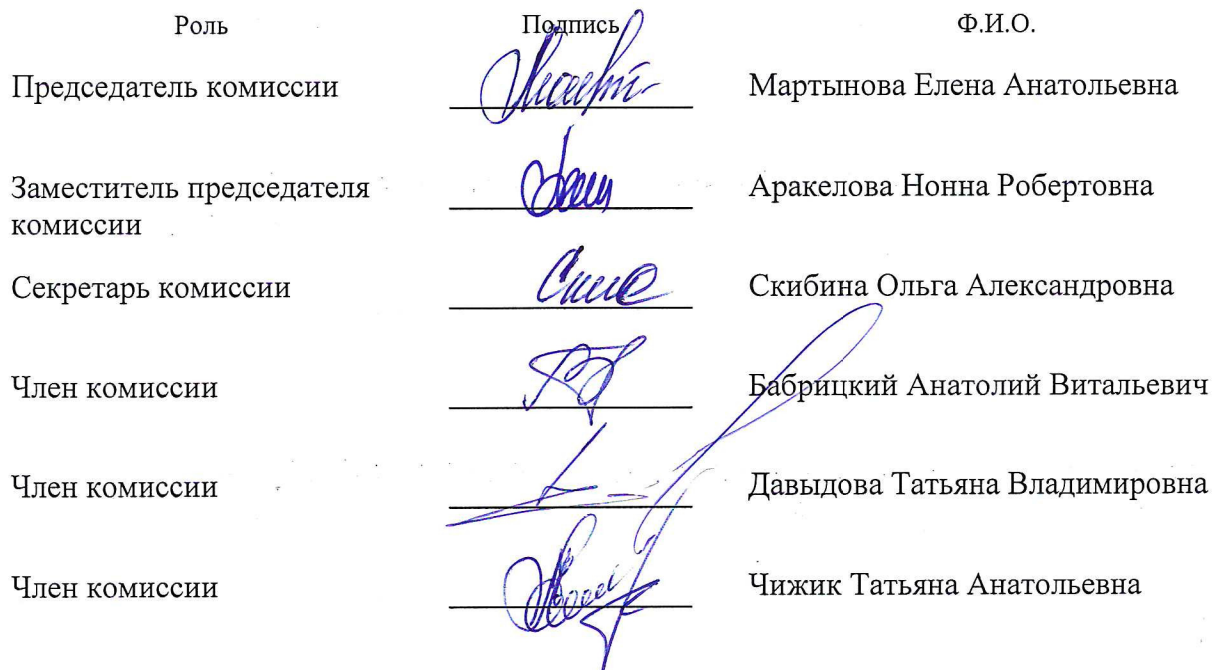 Роль Подпись Ф.И.О.
Председатель комиссии Мартынова Елена Анатольевна
Заместитель председателя Аракелова Нонна Робертовна
комиссии
Секретарь комиссии Скибина Ольга Александровна
Член комиссии Бабрицкий Анатолий Витальевич
Член комиссии Давыдова Татьяна Владимировна
Член комиссии Чижик Татьяна Анатольевна